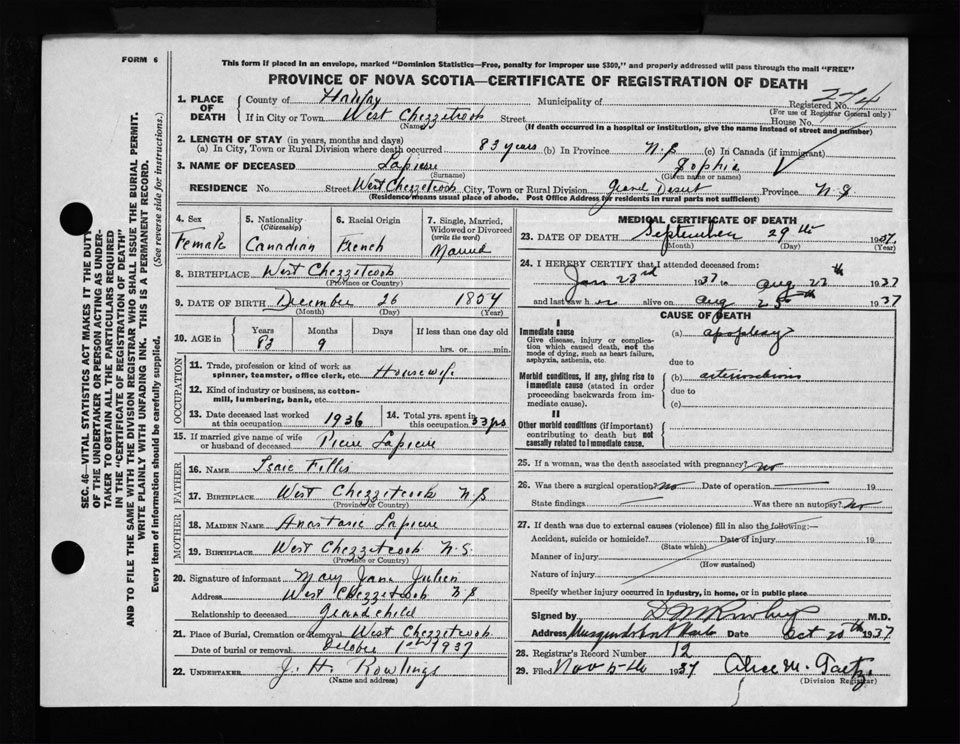 FORM 6
This form if placed in an envelope, marked "Dominion Statistics—Free, penalty for improper use $300," and properly addressed will pass through the mail "FREE"
PROVINCE OF NOVA SCOTIA—CERTIFICATE OF REGISTRATION OF DEATH
SEC. 46—VITAL STATISTICS ACT MAKES IT THE DUTY
OF THE UNDERTAKER OR PERSON ACTING AS UNDER-
TAKER TO OBTAIN ALL THE PARTICULARS REQUIRED
IN THE "CERTIFICATE OF REGISTRATION OF DEATH"
AND TO FILE THE SAME WITH THE DIVISION REGISTRAR WHO SHALL ISSUE THE BURIAL PERMIT.
WRITE PLAINLY WITH UNFADING INK. THIS IS A PERMANENT RECORD.
Every item of Information should be carefully supplied. (See reverse side for instructions.)
1. PLACE OF DEATH County of Halifax Municipality of Registered No. 274
(For use of Registrar General only)
If in City or Town West Chezzetcook Street House No.
(Name) (If death occurred in a hospital or institution, give the name instead of street and number)
2. LENGTH OF STAY (in years, months and days)
(a) In City, Town or Rural Division where death occurred 83 years (b) In Province N.S (c) In Canada (if immigrant)
3. NAME OF DECEASED Lapierre Sophie
(Surname) (Given name or names)
RESIDENCE No. Street West Chezzetcook City, Town or Rural Division Grand Desert Province N.S
(Residence means usual place of abode. Post Office Address for residents in rural parts not sufficient)
4. Sex Female
5. Nationality (Citizenship) Canadian
6. Racial Origin French
7. Single, Married, Widowed or Divorced (write the word) Married
8. BIRTHPLACE West Chezzetcook
(Province or Country)
9. DATE OF BIRTH December 26 1854
(Month) (Day) (Year)
10. AGE in Years 83 Months 9 Days If less than one day old hrs. or min.
OCCUPATION
11. Trade, profession or kind of work as spinner, teamster, office clerk, etc. Housewife
12. Kind of industry or business, as cotton-mill, lumbering, bank, etc.
13. Date deceased last worked at this occupation 1936
14. Total yrs. spent in this occupation 53 yrs
15. If married give name of wife or husband of deceased Pierre Lapierre
FATHER
16. NAME Isaie Fillis
17. BIRTHPLACE West Chezzetcook N S
(Province or Country)
MOTHER
18. MAIDEN NAME Anastasie Lapierre
19. BIRTHPLACE West Chezzetcook N.S.
(Province or Country)
20. Signature of informant Mary Jane Julien
Address West Chezzetcook N S
Relationship to deceased Grandchild
21. Place of Burial, Cremation or Removal West Chezzetcook
Date of burial or removal October 1st 1937
22. UNDERTAKER J. H. Rowlings
(Name and address)
MEDICAL CERTIFICATE OF DEATH
23. DATE OF DEATH September 29th 1937
(Month) (Day) (Year)
24. I HEREBY CERTIFY that I attended deceased from:
Jan 23rd 1937 to Aug 23th 1937
and last saw h er alive on Aug 25th 1937
CAUSE OF DEATH
I
Immediate cause (a) apoplexy
Give disease, injury or complication which caused death, not the mode of dying, such as heart failure, asphyxia, asthenia, etc.
due to
Morbid conditions, if any, giving rise to immediate cause (stated in order proceeding backwards from immediate cause). (b) arteriosclerosis
due to
(c)
II
Other morbid conditions (if important) contributing to death but not causally related to immediate cause.
25. If a woman, was the death associated with pregnancy? no
26. Was there a surgical operation? no Date of operation 19
State findings Was there an autopsy? no
27. If death was due to external causes (violence) fill in also the following:—
Accident, suicide or homicide? Date of injury 19
(State which)
Manner of injury
(How sustained)
Nature of injury
Specify whether injury occurred in industry, in home, or in public place
Signed by M.D.
Address Date Oct 20th 1937
28. Registrar's Record Number 12
29. Filed Nov 5th 1937 Alice M.
(Division Registrar)